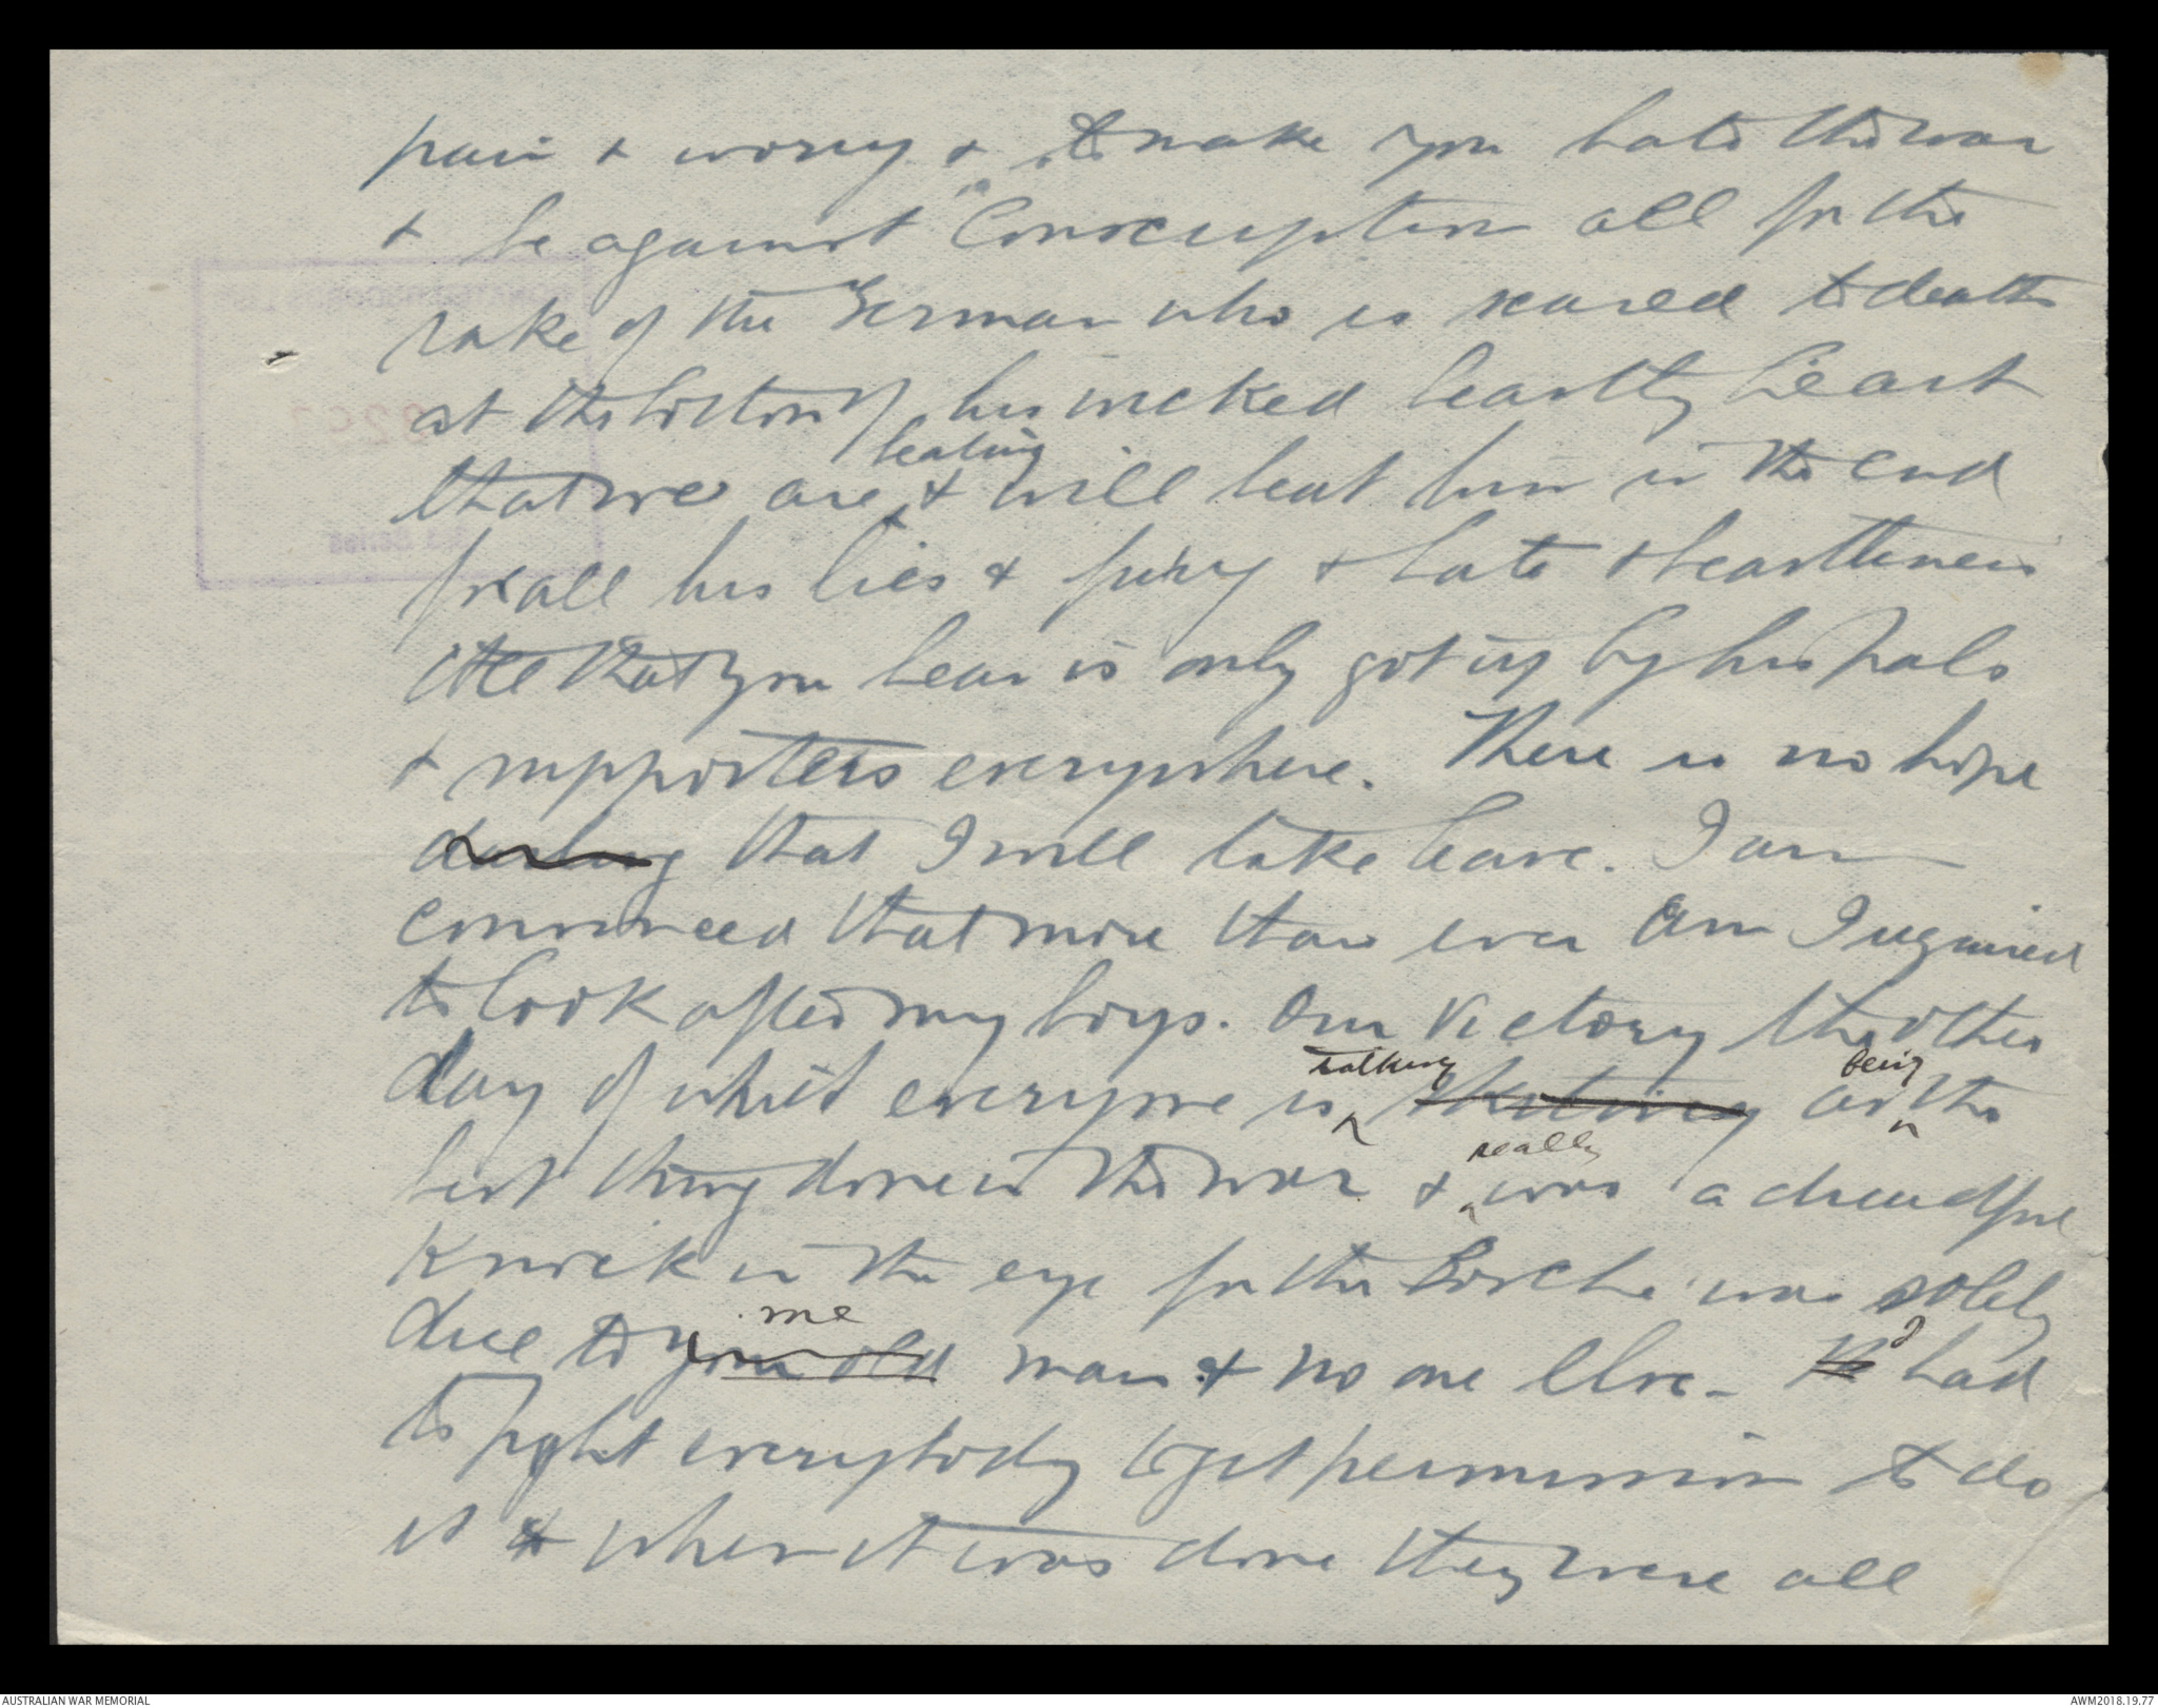 pain & worry & to make you hate the war
& be against Conscription all for the
sake of the German who is scared to death
at the bottom of his wicked beastly heart
that we are beating & will beat him in the end
for all his lies & fury & hate & beastliness
All that you hear is only got up by his pals
& supporters everywhere. There is no hope
darling that I will take leave. I am
convinced that more than ever am I required
to look after my boys. Our victory the other
day of which everyone is talking as being the
best thing done in the war & really was a dreadful
knock in the eye for the Bosche was solely
due to your old me man & no one else - He I had
to fight everybody to get permission to do
it & when it was done they were all
AUSTRALIAN WAR MEMORIAL
AWM2018.19.77